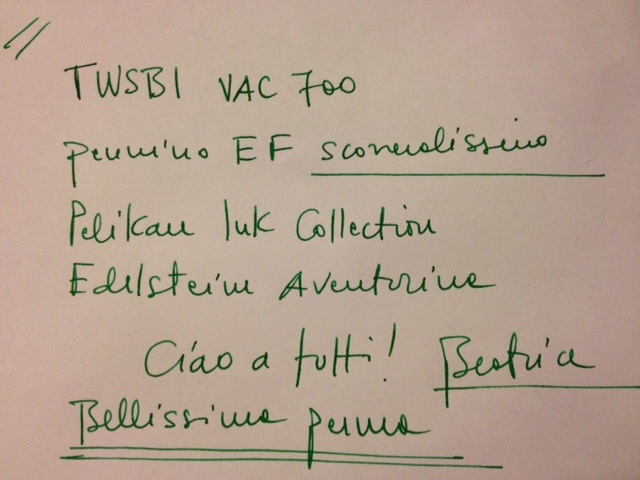 TWSBI VAC 700
pennino EF scorrevolissimo
Pelikan Ink Collection
Edelstein Aventurine
Ciao a tutti! Beatrice
Bellissima penna